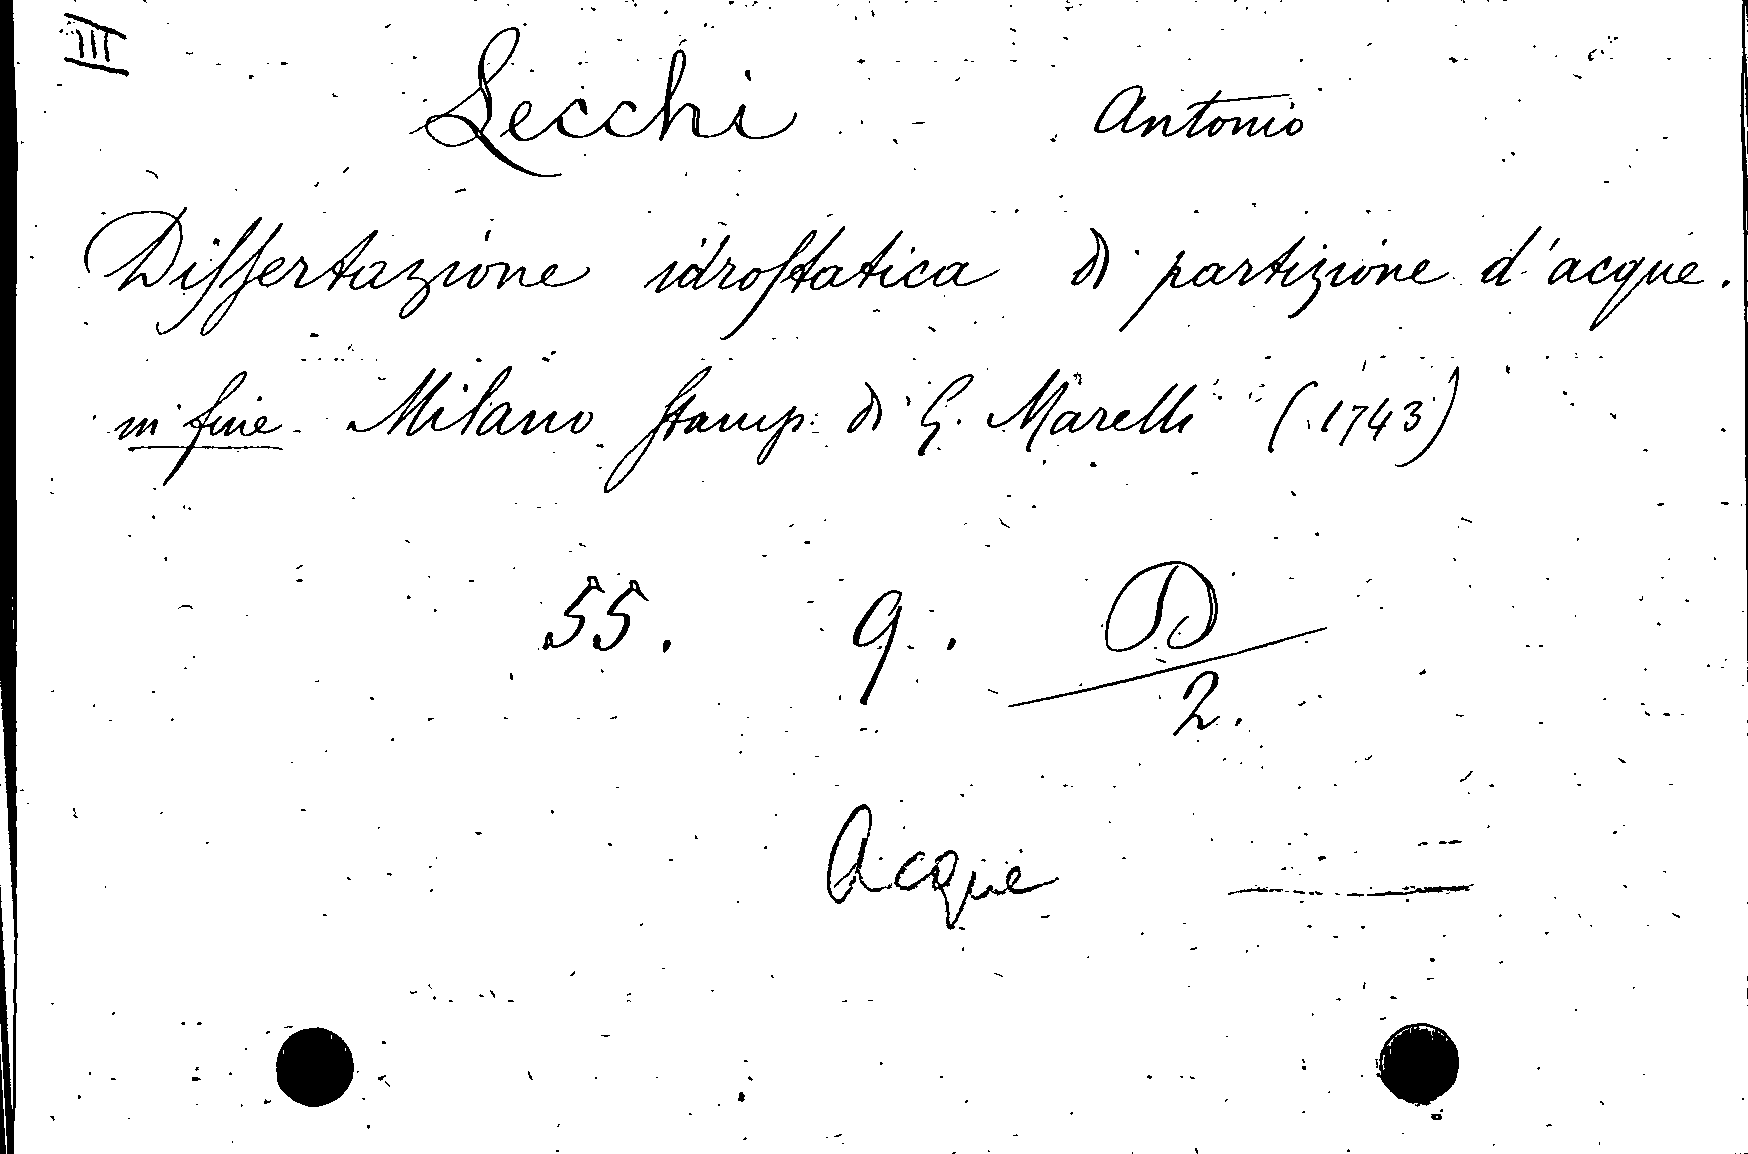 III
Lecchi Antonio
Dissertazione idrostatica di partizione d'acque.
in fine Milano Stamp. di G. Marelli (1743)
55. 9. D
2.
Acque